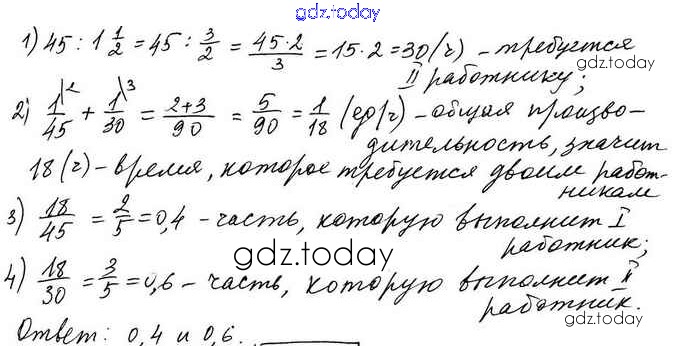 gdz.today
1) 45 : 1 1/2 = 45 : 3/2 = 45·2/3 = 15·2 = 30 (ч) – требуется
gdz.today
II работнику;
2) 1/45 |2 + 1/30 |3 = 2+3/90 = 5/90 = 1/18 (ед/ч) – общая произво-
дительность, значит
18 (ч) – время, которое требуется двоим работ-
никам
3) 18/45 = 2/5 = 0,4 – часть, которую выполнит I
работник;
gdz.today
4) 18/30 = 3/5 = 0,6 – часть, которую выполнит II
работник.
gdz.today
Ответ: 0,4 и 0,6.